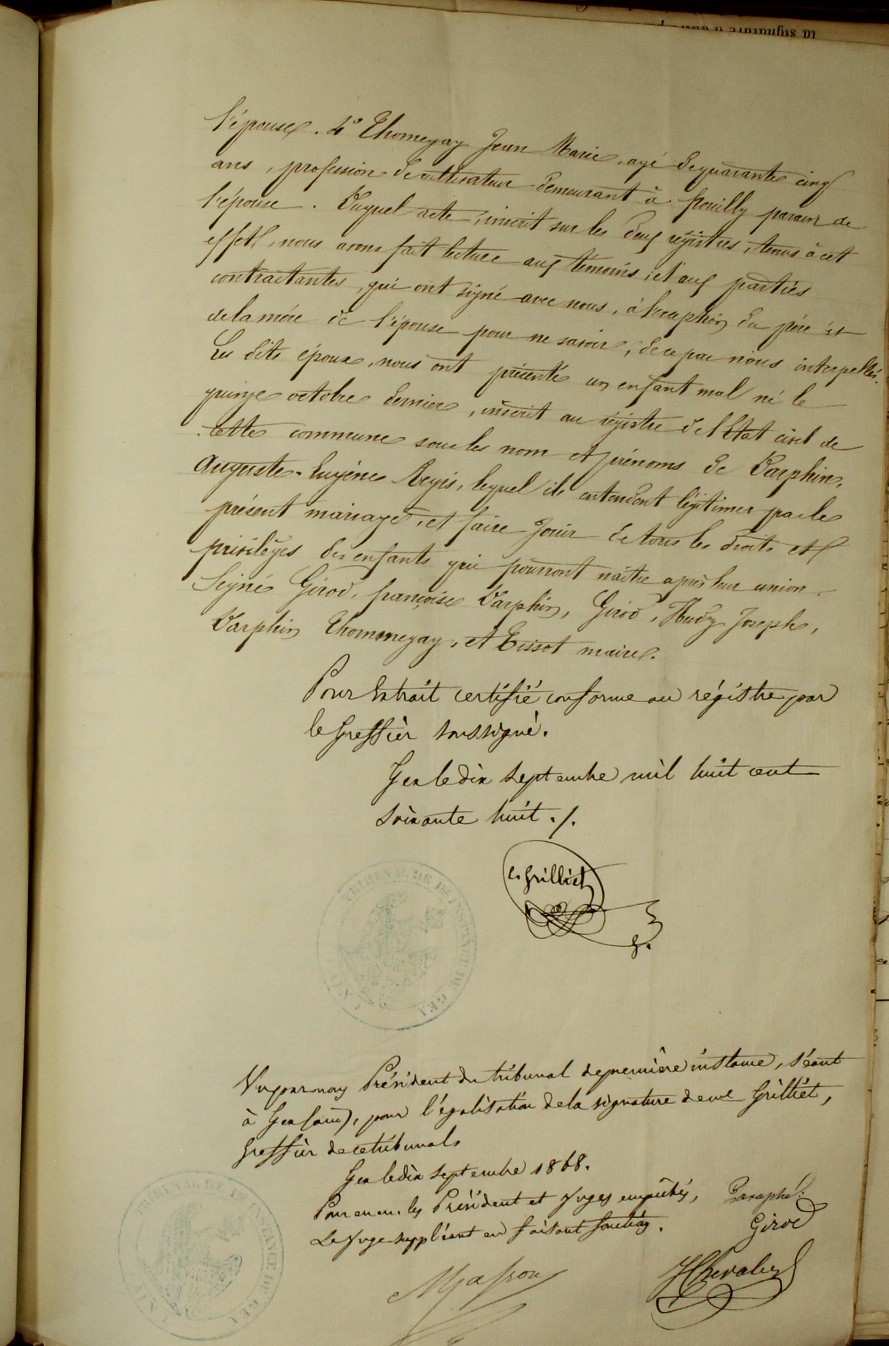 l'épouse. 4° Thomegay Jean Marie, agé de quarante cinq
ans, profession de cultivateur demeurant à pouilly parain de
l'épouse. Duquel acte, inscrit sur les deux régistres, tenus à cet
effet, nous avons fait lecture aux témoins, et aux parties
contractantes, qui ont signé avec nous, à l'exception du père et
de la mère de l'épouse pour ne savoir, de ce par nous interpellés.
Les dits époux, nous ont présenté un enfant mal né le
quinze octobre dernier, inscrit au régistre de l'Etat civil de
cette commune sous les nom et prénoms de Darphin,
Auguste Eugène Regis, lequel ils entendent légitimer par le
présent mariage, et faire jouir de tous les droits et
privilèges des enfants qui pourront naître après leur union.
Signé Girod, françoise Darphin, Girod, Joseph,
Darphin Thommegay, et Tissot maire.
Pour Extrait certifié conforme au régistre par
le Greffier soussigné.
Gex le dix septembre mil huit cent
soixante huit ./.
Grilliet
TRIBUNAL DE 1E INSTANCE DE GEX
Vu par nous Président du tribunal de première instance, séant
à Gex (ain), pour légalisation de la signature de me Grilliet,
Greffier de ce tribunal.
Gex le dix septembre 1868.
Pour les Président et Juges empêchés,
Le Juge suppléant en faisant fonction.
Paraphé.
Girod
TRIBUNAL DE 1E INSTANCE DE GEX
Masson
Chevalier